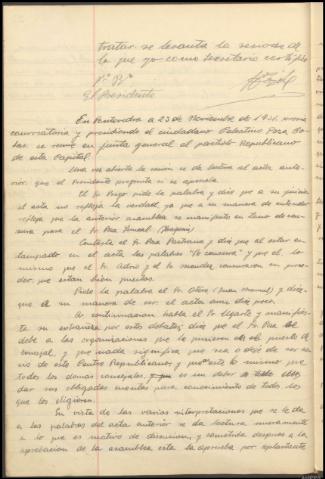 tratar se levanta la sesion de
lo que yo como secretario certifico
Vº Bº
El Presidente
En Pontevedra a 23 de Noviembre de 1931 previa
convocatoria y presidiendo el ciudadano Celestino Poza Co-
bas se reune en junta general el partido Republicano
de esta Capital.
Una vez abierta la sesion se da lectura al acta ante-
rior que el Presidente pregunta si se aprueba.
El Sr. pide la palabra, y dice que a su juicio
el acta no refleja la verdad, ya que a su manera de entender
refleja que la anterior asamblea se manifesto en tono de cen-
sura para el Sr. Poza
Contesta el Sr. Poza Pastrana y dice que al estar en-
tampado en el acta las palabras "Yo censuro" y que el
mismo que el Sr. y el Sr. Mendez censuraron en proce-
der que estan bien puestas.
Pide la palabra el Sr. Otero (Juan Manuel) y dice
que a su manera de ver el acta esta
A continuacion habla el Sr. Ugarte y manifies-
ta su extrañeza por estos debates, dice que el Sr. Poza se
debe a las organizaciones que le pusieron en el puesto de
concejal, y que nada significa que sea o deje de ser so-
cio de este Centro Republicano y pues este lo mismo que
todos los demas concejales es un deber de
dar sus obligadas cuentas para conocimiento de todos los
que los eligieron.
En vista de las varias interpretaciones que se le da
a las palabras del acta anterior se da lectura nuevamente
a lo que es motivo de discusion, y sometida despues a la
aprobacion de la asamblea esta la aprueba por aplastante